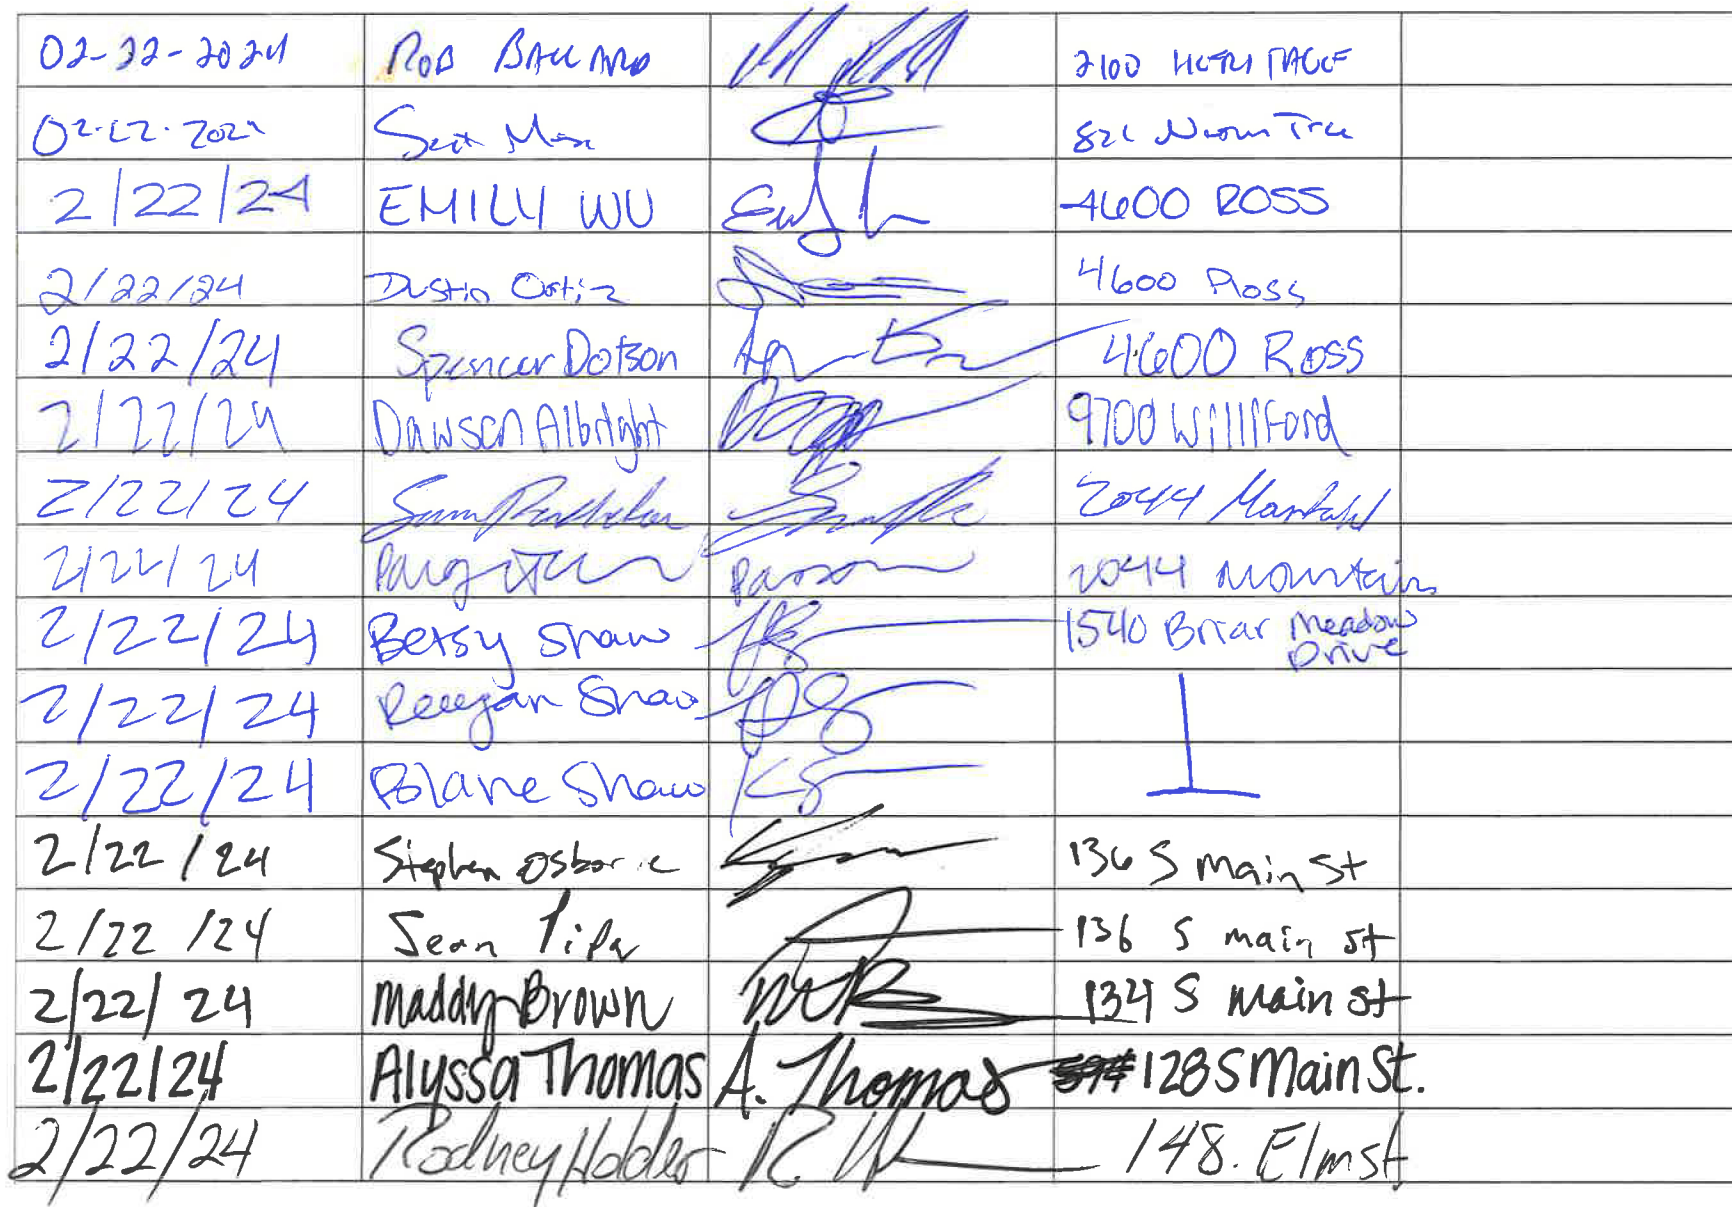 02-22-2024 ROB BALLARD 2100 HERITAGE
02-22-202 821
2/22/24 EMILY WU 4600 ROSS
2/22/24 Dustin Ortiz 4600 Ross
2/22/24 Spencer Dotson 4600 Ross
2/22/24 Dawson Albright 9700 Williford
2/22/24 Sam 2044
2/22/24 2044 Mountain
2/22/24 Betsy Shaw 1540 Briar Meadow Drive
2/22/24 Reegan Shaw
2/22/24 Blane Shaw
2/22/24 Stephen Osborne 136 S Main St
2/22/24 Sean 136 S main st
2/22/24 Maddy Brown 134 S Main St
2/22/24 Alyssa Thomas A. Thomas 128 S Main St.
2/22/24 Rodney Holder R. H 148. Elm st